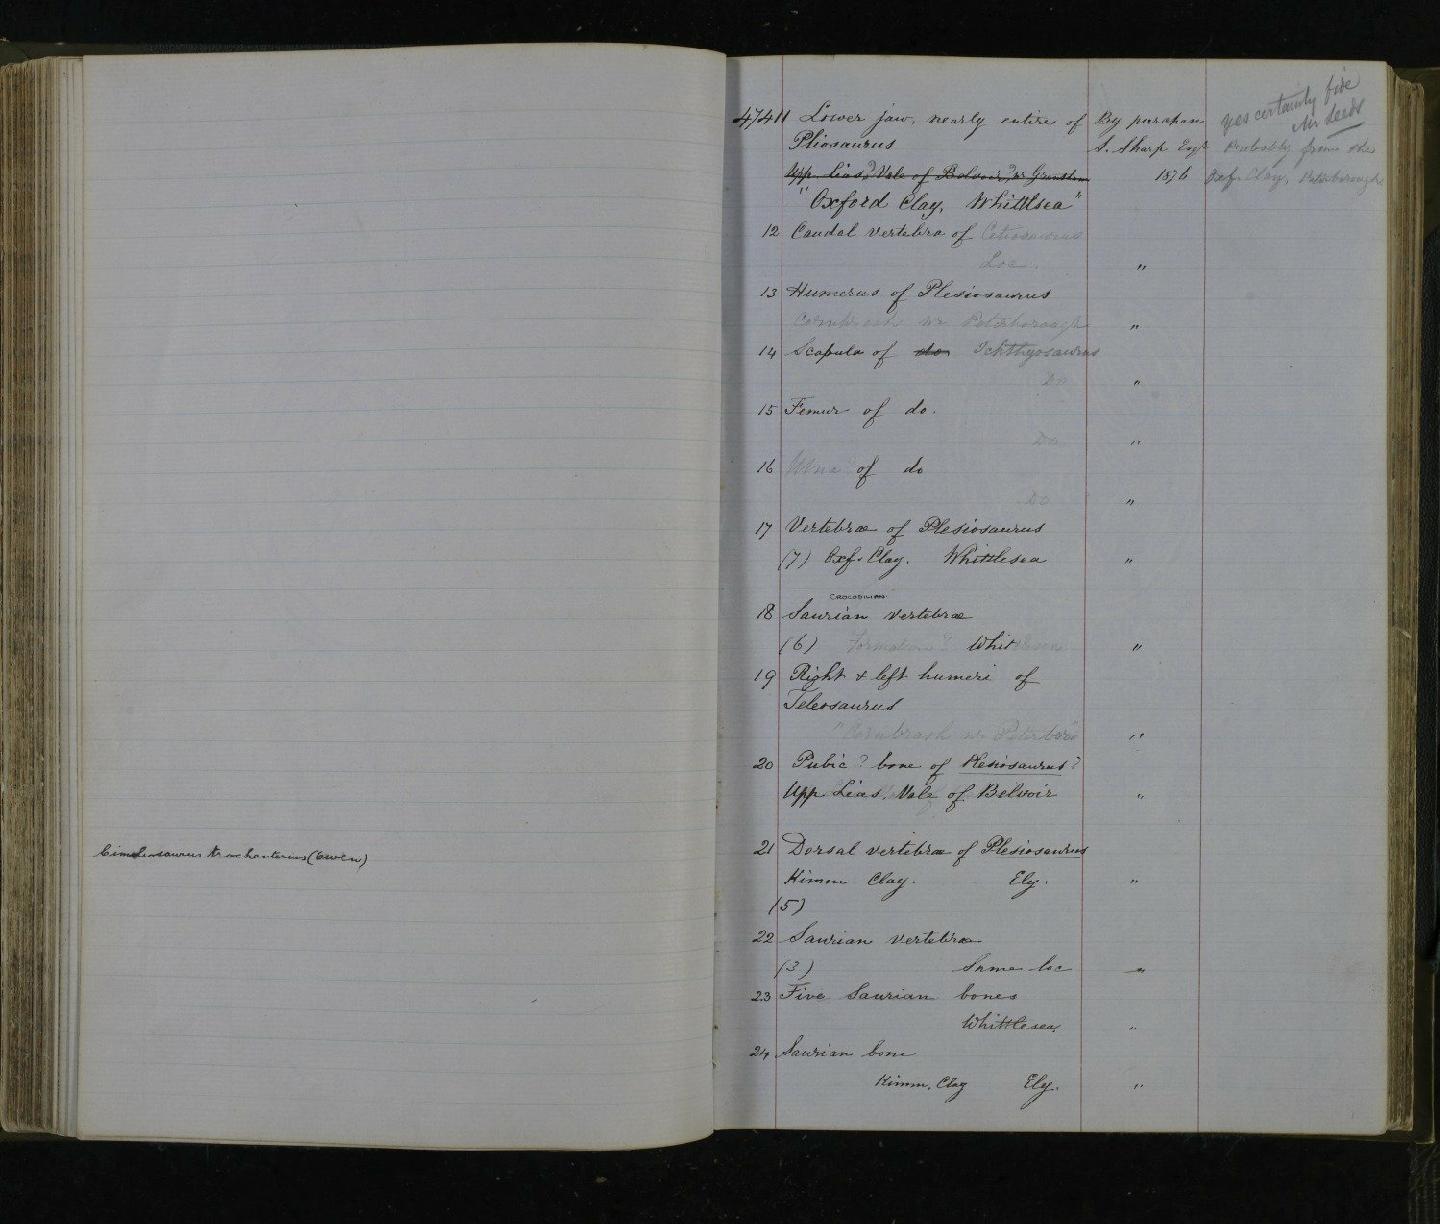 Cimoliosaurus trochanterius (Owen)
yes certainly fide
Mr Leeds
47411 Lower jaw, nearly entire of By purchase
Pliosaurus S. Sharp Esqr Probably from the
Upp. Lias? Vale of Belvoir? nr Grantham 1876 Oxf. Clay, Peterborough
"Oxford Clay, Whittlsea"
12 Caudal vertebra of Cetiosaurus
Loc. "
13 Humerus of Plesiosaurus
Cornbrash nr Peterborough "
14 Scapula of do. Ichthyosaurus
Do "
15 Femur of do.
Do "
16 Ulna? of do
Do "
17 Vertebræ of Plesiosaurus
(7) Oxf. Clay. Whittlesea "
CROCODILIAN
18 Saurian vertebræ
(6) Formation? Whittlesea "
19 Right & left humeri of
Teleosaurus
"Cornbrash nr Peterboro" "
20 Pubic? bone of Plesiosaurus?
Upp Lias, Vale of Belvoir "
21 Dorsal vertebræ of Plesiosaurus
Kimm Clay. Ely. "
(5)
22 Saurian vertebræ
(3) Same loc "
23 Five Saurian bones
Whittlesea "
24 Saurian bone
Kimm. Clay Ely. "